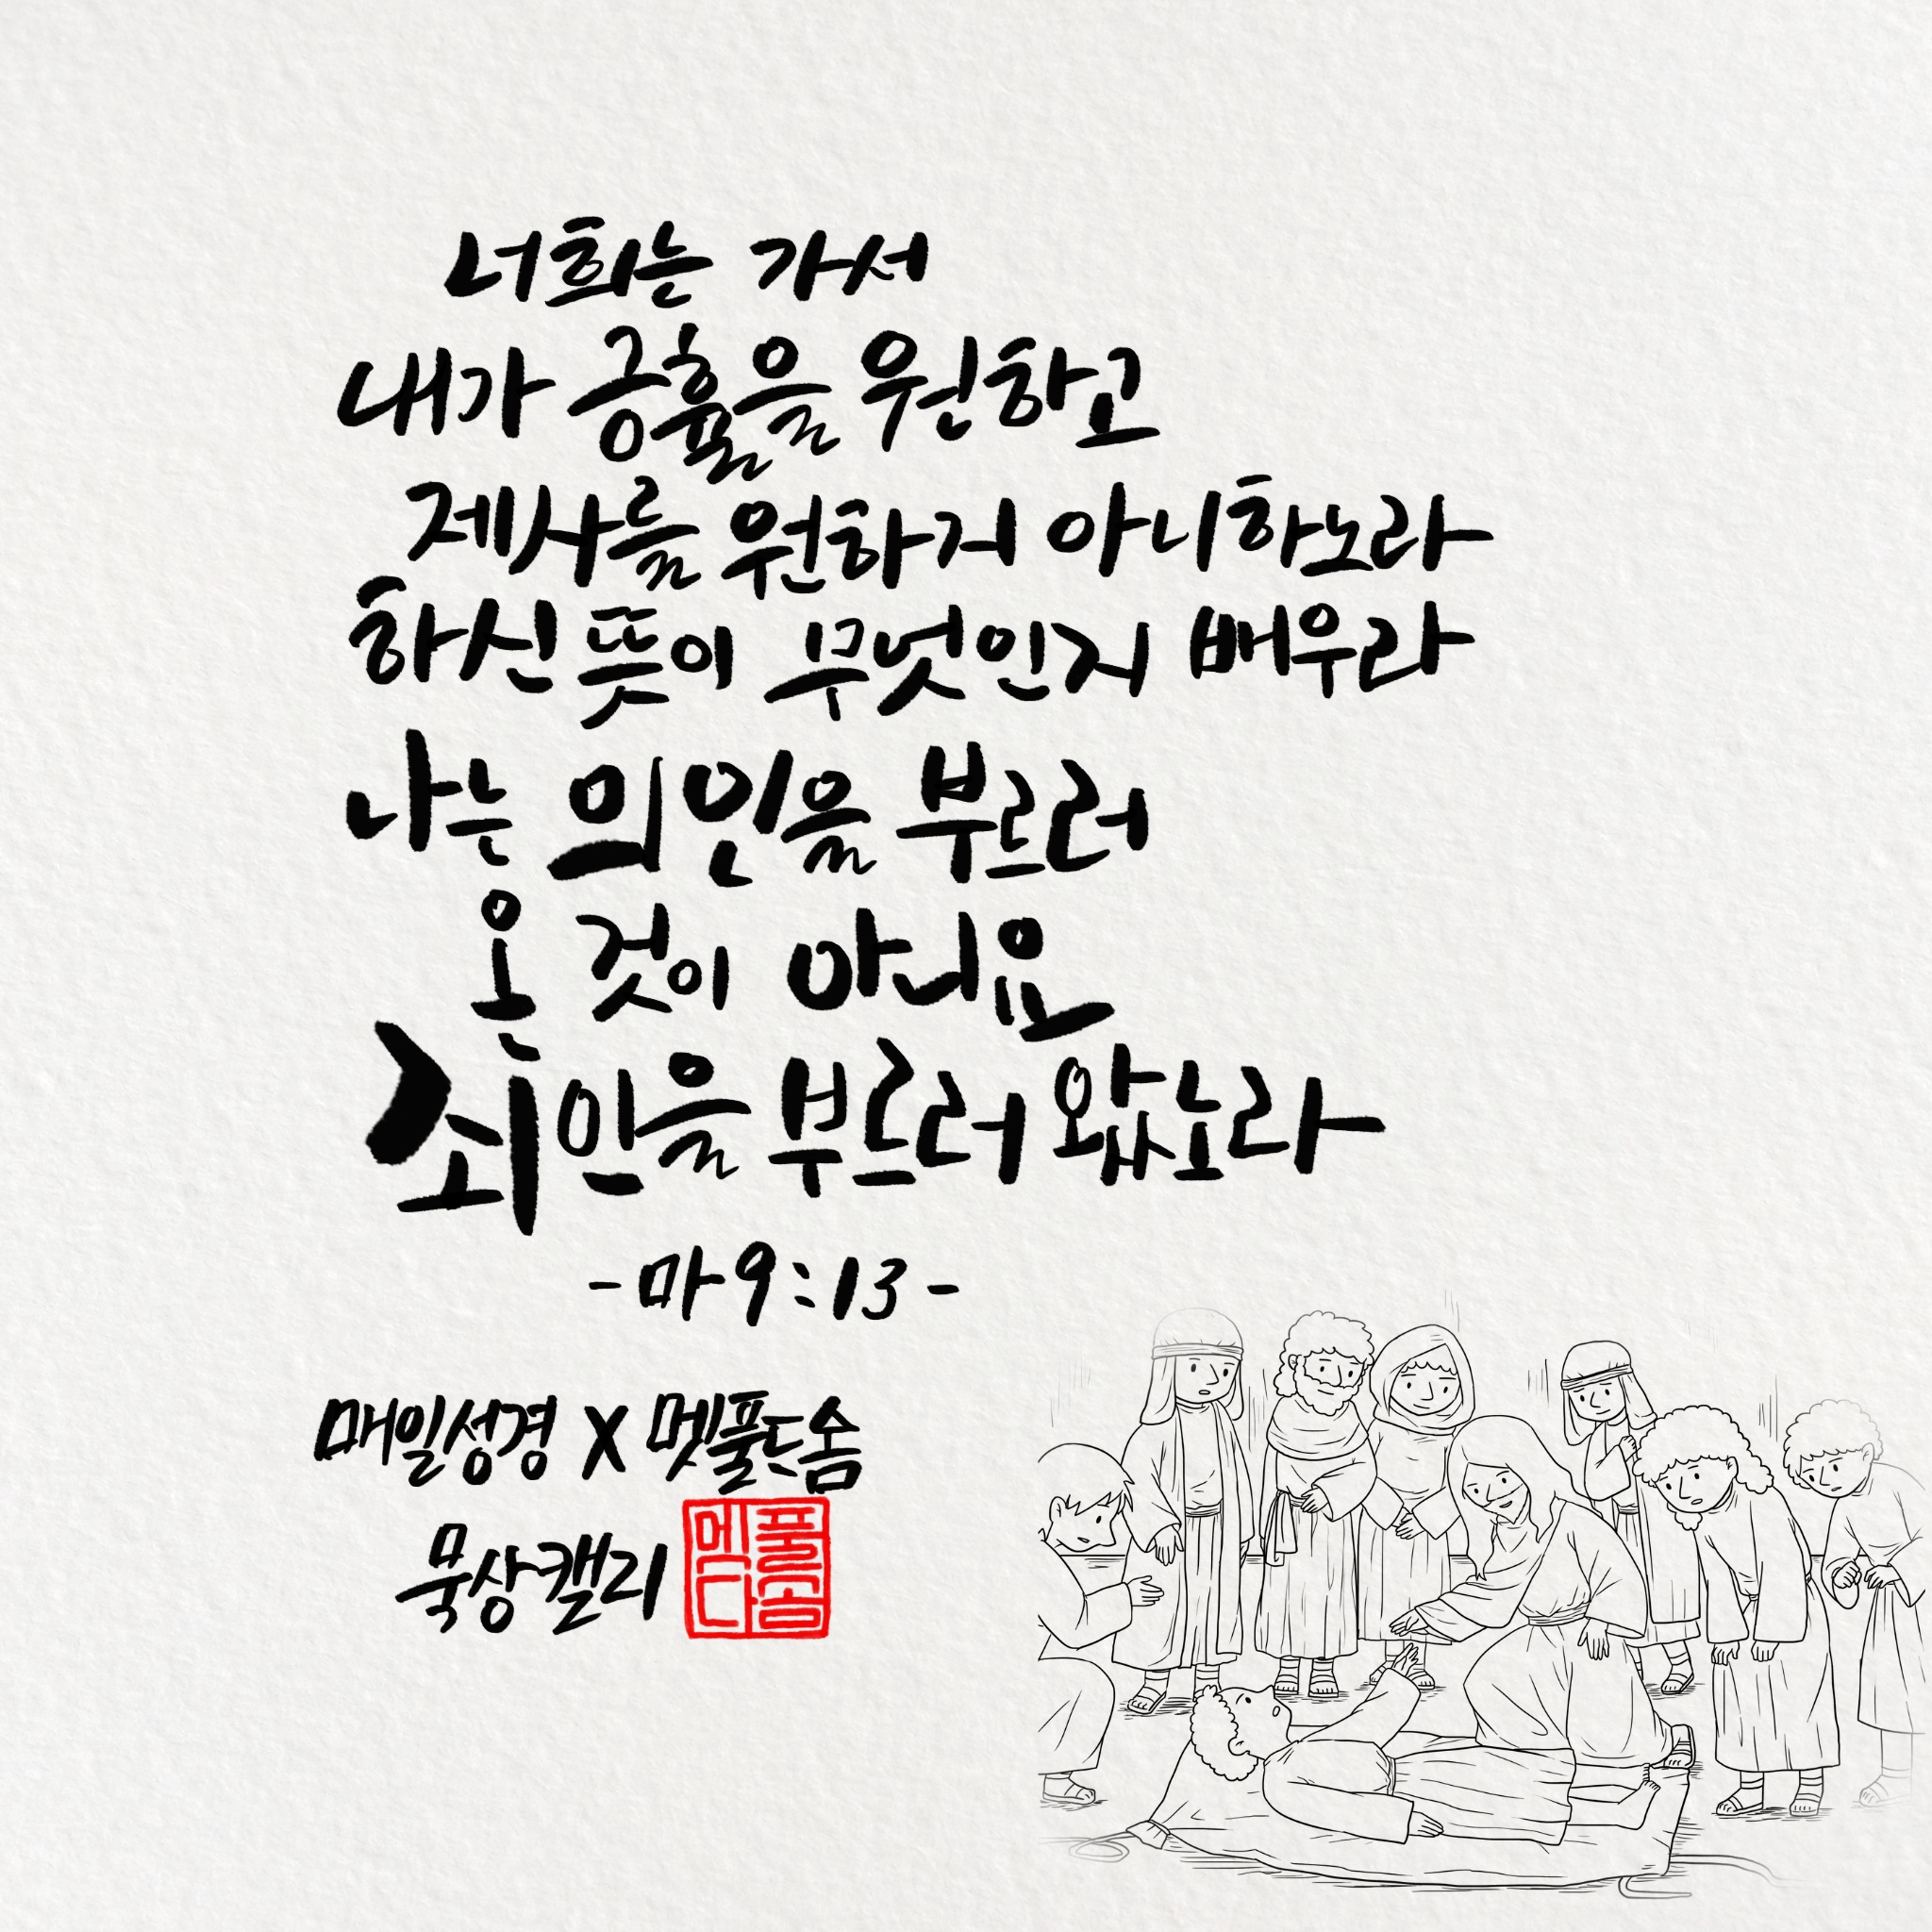 너희는 가서
내가 긍휼을 원하고
제사를 원하지 아니하노라
하신 뜻이 무엇인지 배우라
나는 의인을 부르러
온 것이 아니요
죄인을 부르러 왔노라
-마9:13-
매일성경 X 멧풀드솜
묵상캘리